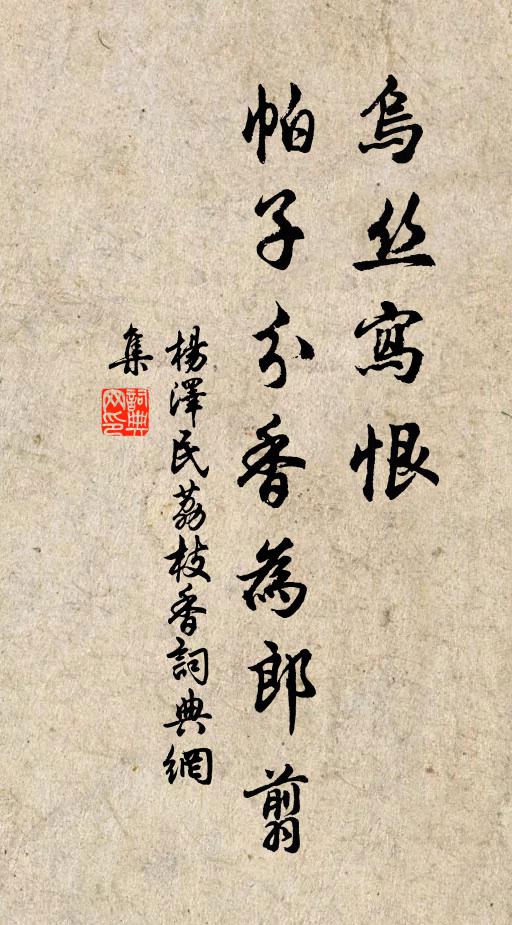 烏丝寫恨
帕子分香為郎翦
楊澤民荔枝香詞典網
集
詞典網印